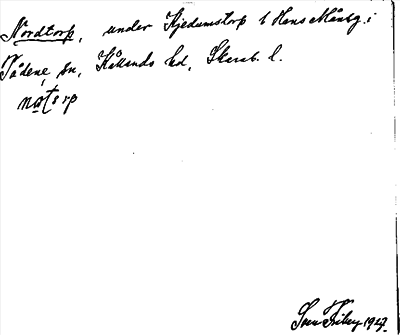 Nordtorp, under Kjedumstorp 6 Hans Månsg. i
Tådene sn, Kållands hd, Skarab. l.
nɷtərp
Sven Friberg 1927.